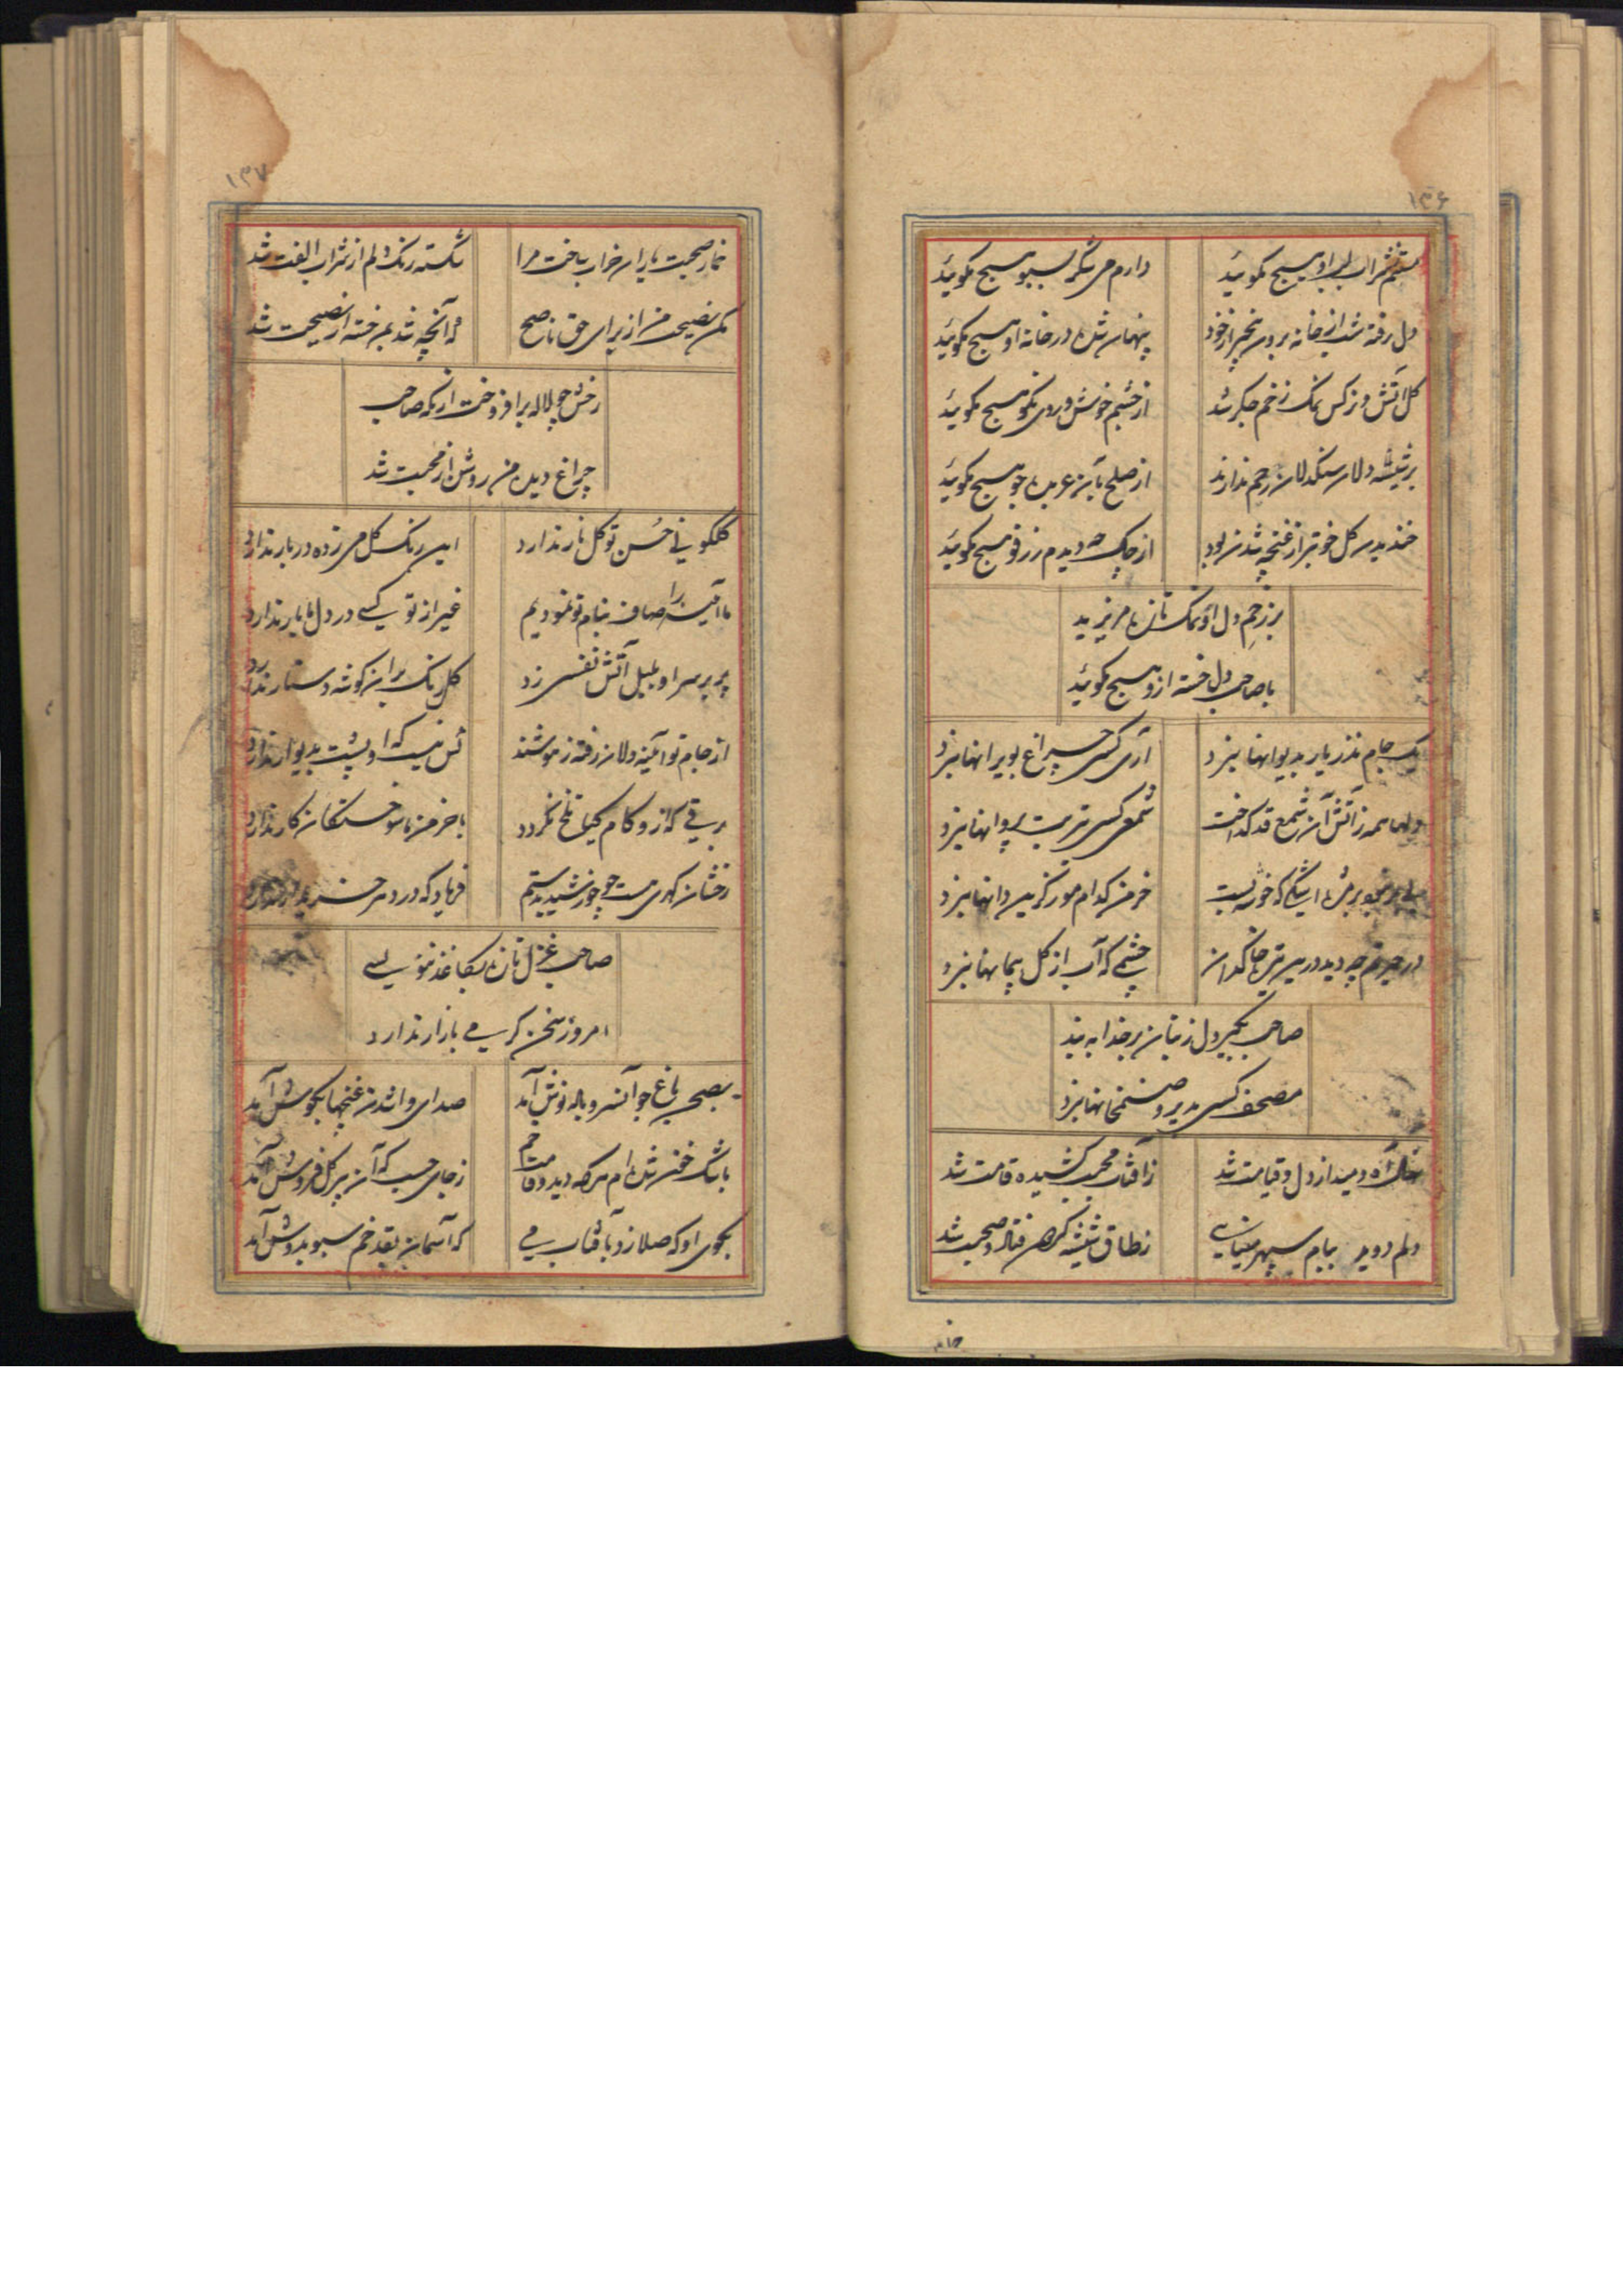 ۱۳۶
مستم شراب لب او هیچ مگوئید دارم می شکر بسبو هیچ مگوئید
دل رفته شب از خانه برون بیخبر از خود پنهان شده در خانه او هیچ مگوئید
گل آتش و نرگس نمک زخم جگر شد از چشم خوش و روی نکو هیچ مگوئید
بر شیشه دلان سنگدلان رحم ندارند از صلح بآن عربده جو هیچ مگوئید
خندیدن گل خوبتر از غنچه شدن بود از چاک چه دیدم ز رفو هیچ مگوئید
بر زخم دل او نمک تازه مریزید
با صاحب دل خسته ازو هیچ مگوئید
یک جام نذر یار بدیوانها نبرد آری کسی چراغ بویرانها نبرد
دلها همه ز آتش آن شمع قد گداخت شمعی کسی بتربت پروانها نبرد
که خوشه بست خرمن کدام مور کزین دانها نبرد
در حیرتم چه دید درین تیره خاکدان چشمی که آب از گل پیمانها نبرد
صاحب بگیر دل ز بتان بر خدا ببند
مصحف کسی بدیر و صنمخانها نبرد
آه دمید از دل و قیامت شد ز آفتاب محبت کشیده قامت شد
دلم دوید ببام سپهر مینایی ز طاق شیشه گردن فتاد و صحبت شد
خمار
۱۳۷
خمار صحبت یاران خراب ساخت مرا شکسته رنگ دلم از شراب الفت شد
مکن نصیحت من از برای حق ناصح که آنچه شد بمن خسته از نصیحت شد
رخش چو لاله برافروخت از نگه صاحب
چراغ دیده من روشن از محبت شد
گلگونی حسن تو گل نار ندارد این رنگ گل می زده در بار ندارد
ما آینه را صاف بنام تو نمودیم غیر از تو کسی در دل ما بار ندارد
پر بر سر او بلبل آتش نفسی زد گل رنگ بر آن گوشه دستار ندارد
از جام تو آئینه دلان رفته ز هوشند کس نیست که او پشت بدیوار ندارد
برقی که ازو کام گیا تلخ نگردد با خرمن ما سوختگان کار ندارد
رخشان گهری هست چو خورشید بدستم فریاد که درد سر خریدار ندارد
صاحب غزل تازه بکاغذ ننویسی
امروز سخن گرمی بازار ندارد
بصحن باغ چو آن سرو باله نوش آمد صدای وا شدن غنچها بگوش آمد
باشک خفته شدم هر که دید و قامت خم ز جای جست که آن پیر گل فروش آمد
بکوی او که صلا زد بآفتاب می که آسمان بقد خم سبو بدوش آمد